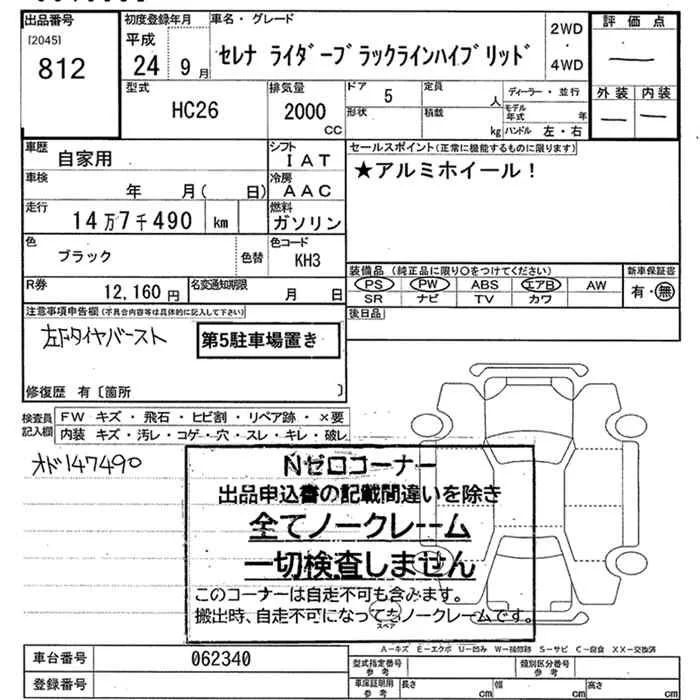 出品番号
[2045]
812
初度登録年月
平成
24 9月
車名・グレード
セレナ ライダーブラックラインハイブリッド
2WD
・
4WD
評価点
―
外装 内装
― ―
型式
HC26
排気量
2000
CC
ドア
5
形状
定員
人
積載
kg
ディーラー・並行
モデル年式 年
ハンドル 左・右
車歴
自家用
シフト
IAT
車検
年 月( 日)
冷房
AAC
走行
14万7千490 km
燃料
ガソリン
色
ブラック
色替
色コード
KH3
R券
12,160円
名変通知期限
月 日
セールスポイント(正常に機能するものに限ります)
★アルミホイール!
装備品 (純正品に限り○をつけてください)
PS PW ABS エアB AW
SR ナビ TV カワ
新車保証書
有・無
後日品
注意事項申告欄(不具合内容等は具体的に記入して下さい)
左Fタイヤバースト
第5駐車場置き
修復歴 有〔箇所 〕
検査員記入欄
FW キズ・飛石・ヒビ割・リペア跡・×要
内装 キズ・汚レ・コゲ・穴・スレ・キレ・破レ
オド147490
Nゼロコーナー
出品申込書の記載間違いを除き
全てノークレーム
一切検査しません
このコーナーは自走不可も含みます。
搬出時、自走不可になってもノークレームです。
スペア
A-キズ E-エクボ U-凹み W-補修跡 S-サビ C-腐食 XX-交換済
車台番号
062340
登録番号
型式指定番号
参考
類別区分番号
参考
車庫証明用
参考
長さ cm
幅 cm
高さ cm